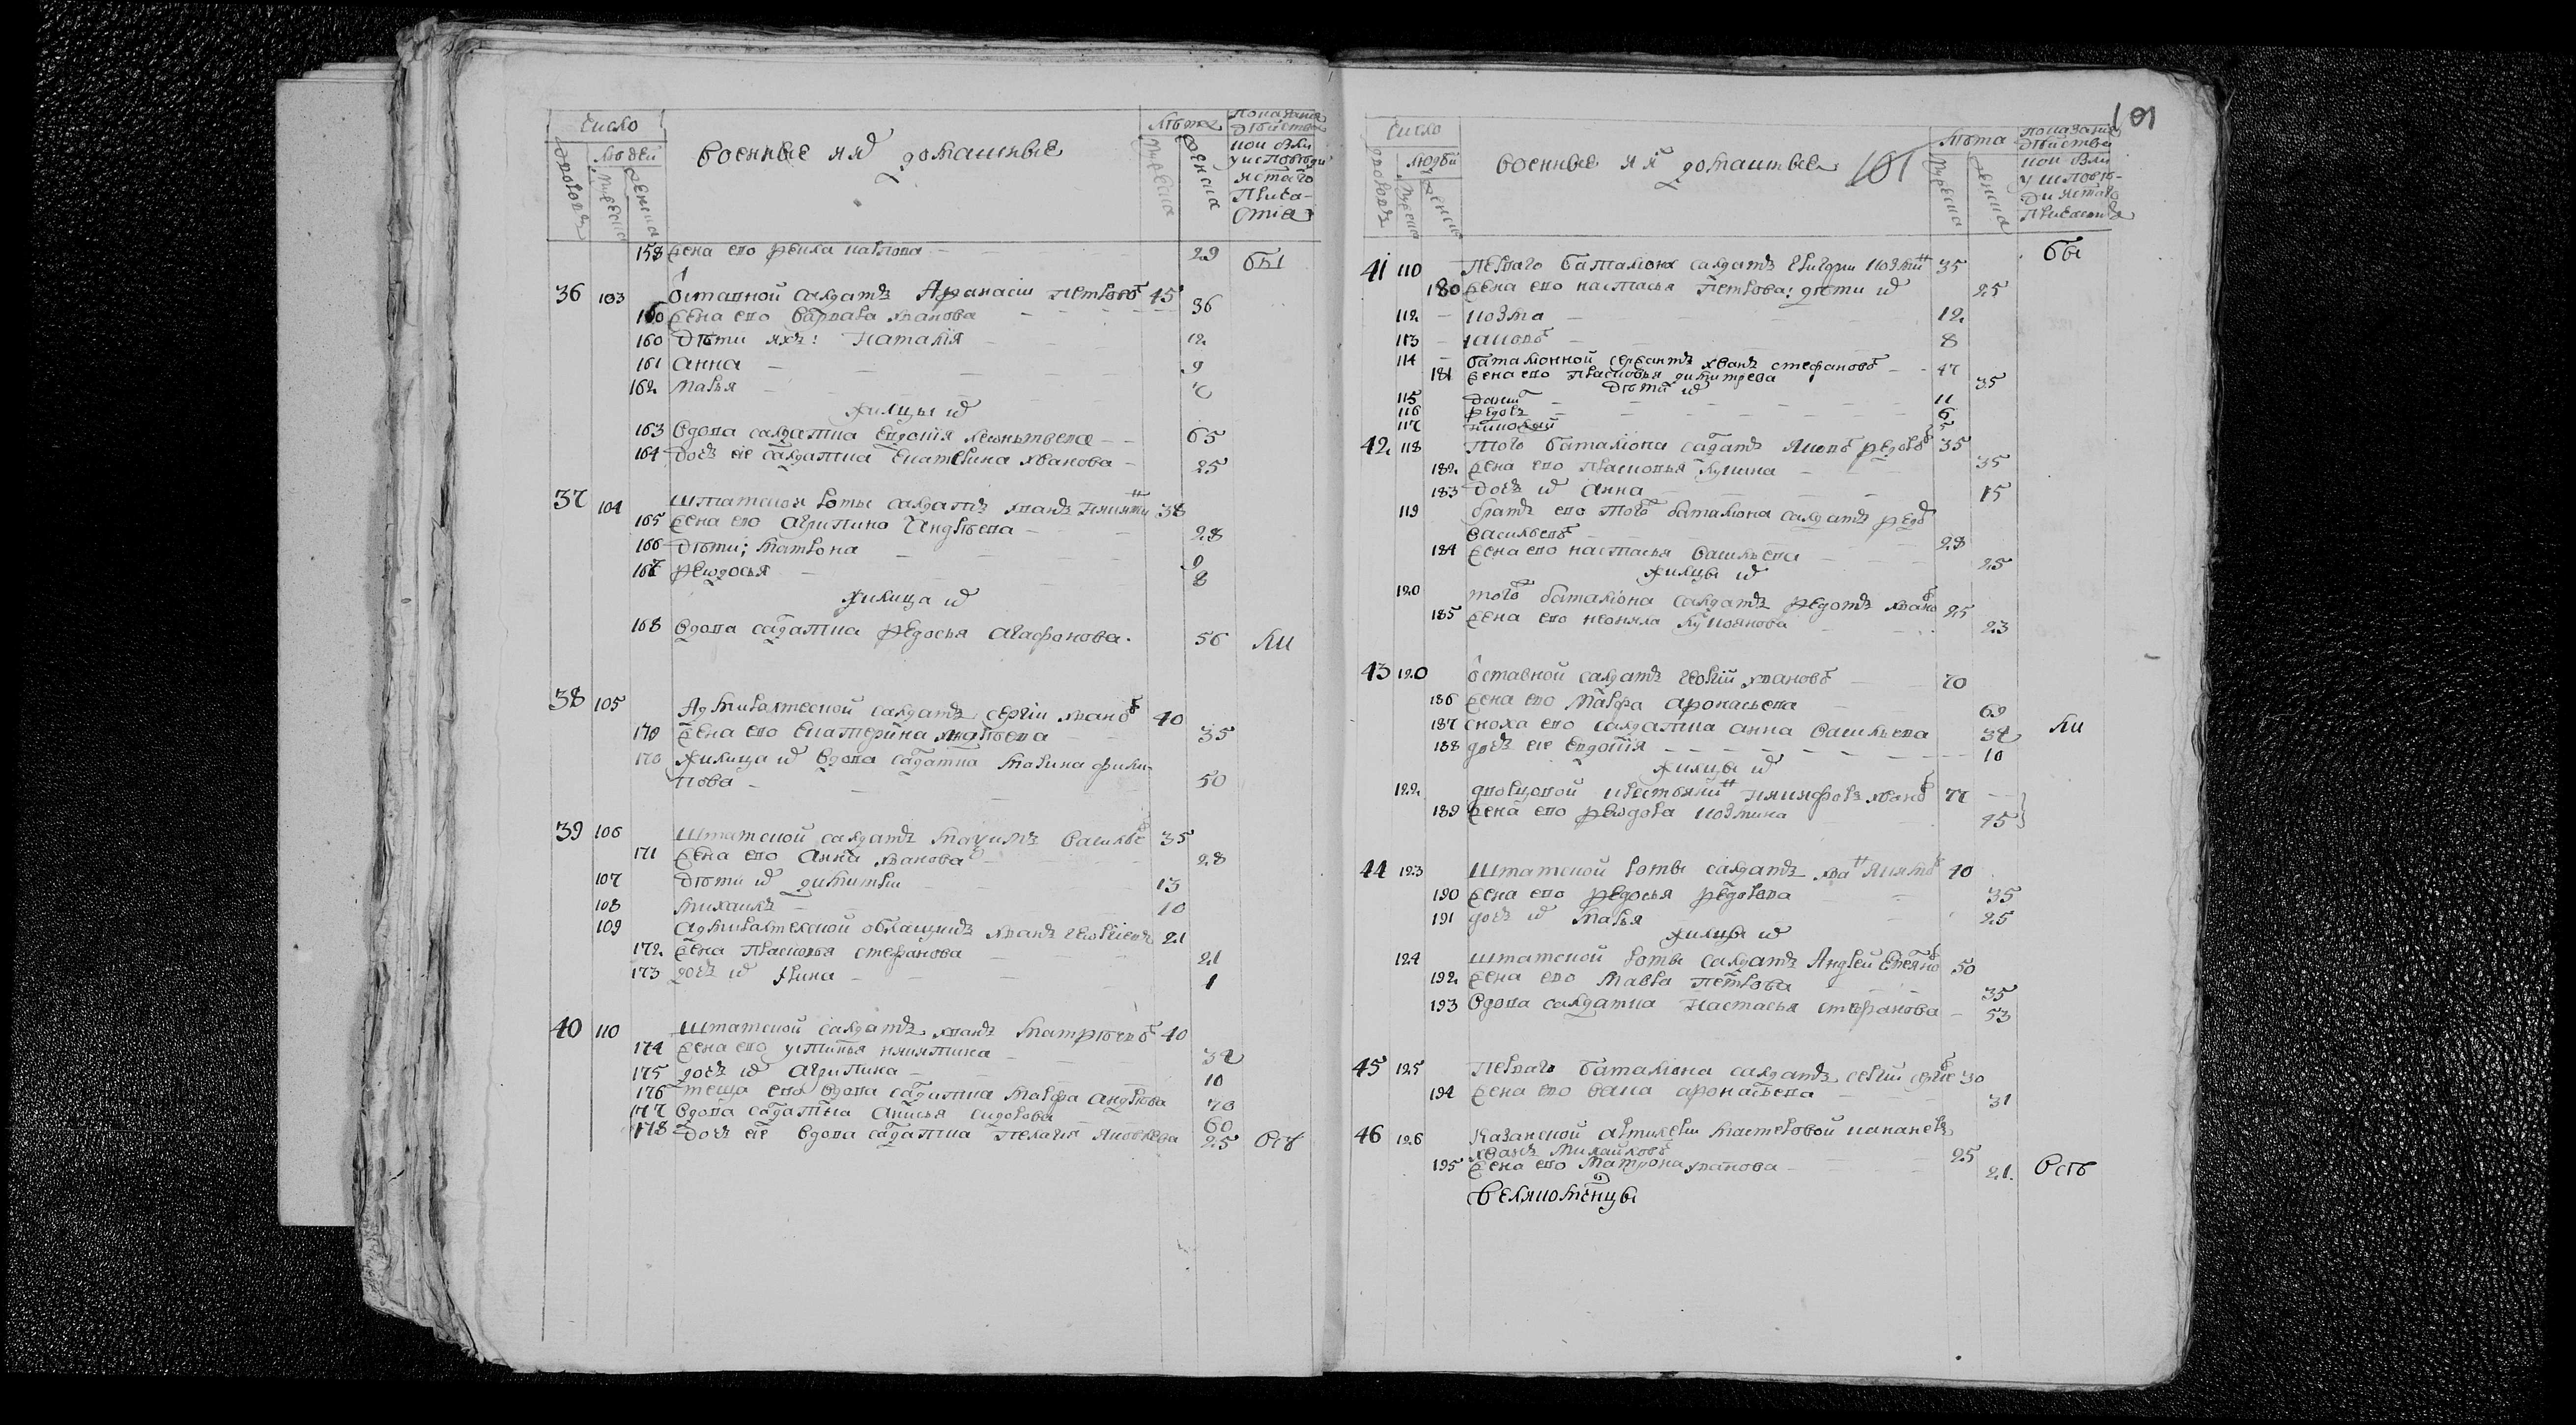 число
людей
дворовъ
мужеска
женска
военные и их домашные
лѣта
мужеска
женска
показание
дѣйства
кои были
у исповеди
и с[вя]таго
прича-
стия
158 жена ево фекла павлова 29 бы
36 103 отставной салдатъ Афанасии петровъ 45
160 жена ево варвара иванова 36
160 дѣти ихъ: наталия 12
161 анна 9
162 марья
жилцы их
163 вдова салдатка евдокия леонтьева 65
164 дочь ее салдатка екатерина иванова 25
37 104 штатской роты салдатъ иванъ никитин 38
165 жена ево агрипина андрѣева 28
166 дѣти: матрона 9
167 феодосья 8
жилица их
168 вдова салдатка федосья агафонова 56 ли
38 105 Адмиралтеской салдатъ сергии иванов 40
170 жена ево екатерина андрѣева 35
170 жилица их вдова салдатка марина фили-
пова 50
39 106 штатской салдатъ маѯимъ василье 35
171 жена ево анна иванова 28
107 дѣти их димитрии 13
108 михаилъ 10
109 адмиралтеской обыащикъ иванъ георгиевъ 21
172 жена прасковья стефанова 21
173 дочь их ирина 1
40 110 штатской салдатъ иванъ матфѣевъ 40
174 жена ево устинья никитина 34
175 дочь их агрипина 10
176 теща ево вдова салдатка марфа андреева 70
177 вдова салдатка анисья сидорова 60
178 дочь ее вдова салдатка пелагия яковлева 25 всѣ
101
число
людей
дворовъ
мужеска
женска
военные и их домашные 101
лѣта
мужеска
женска
показание
дѣйства
кои были
у испове-
ди и с[вя]таго
причастия
бы
41 110 перваго баталиона салдатъ григории козмин 35
180 жена ево настасья петрова: дѣти их 25
112 козма 12
113 иаковъ 8
114 баталионной сержантъ иванъ стефановъ 47
181 жена ево прасковья димитрева 35
дѣти их
115 данил 11
116 федоръ 6
117 николай 5
42 118 того баталиона салдатъ яковъ федоров 35
182 жена ево прасковья 35
183 дочь их анна 15
119 братъ ево того баталиона салдатъ федо
васильевъ 28
184 жена ево настасья васильева 25
жилцы их
120 того баталиона салдатъ федотъ ивано 25
185 жена ево неонила 23
43 120 отставной салдатъ георгий ивановъ 70
186 жена ево марфа афонасьева 69
187 сноха ево салдатка анна васильева 34 ли
188 дочь ее евдокия 10
жилцы их
122 дворцовой крестьянин никифоръ ивано 77
189 жена ево феодора козмина 75
44 123 штатской роты салдатъ ива никит 40
190 жена ево федосья федорова 35
191 дочь их марья 25
жилцы их
124 штатской роты салдатъ Андрей степано 50
192 жена ево мавра петрова 35
193 вдова салдатка настасья стефанова 53
45 125 перваго баталиона салдатъ сергий сергѣе 30
194 жена ево васа афонасьева 31
46 126 казанской артилерии мастеровой кананеръ
иванъ михайловъ 25
195 жена ево матрона иванова 21 всѣ